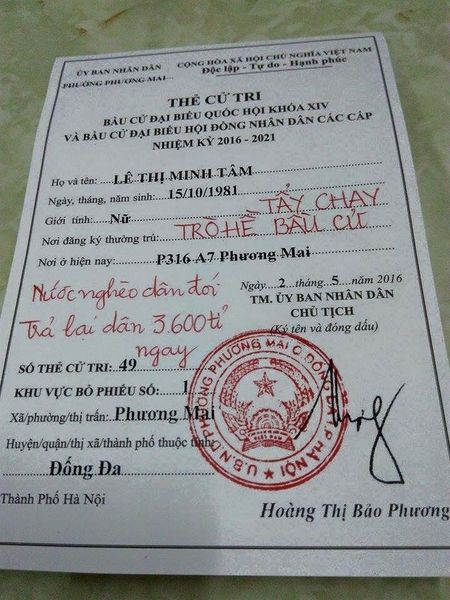 ỦY BAN NHÂN DÂN
PHƯỜNG PHƯƠNG MAI
CỘNG HÒA XÃ HỘI CHỦ NGHĨA VIỆT NAM
Độc lập - Tự do - Hạnh phúc
THẺ CỬ TRI
BẦU CỬ ĐẠI BIỂU QUỐC HỘI KHÓA XIV
VÀ BẦU CỬ ĐẠI BIỂU HỘI ĐỒNG NHÂN DÂN CÁC CẤP
NHIỆM KỲ 2016 - 2021
Họ và tên: LÊ THỊ MINH TÂM
Ngày, tháng, năm sinh: 15/10/1981
TẨY CHAY
Giới tính: Nữ
TRÒ HỀ BẦU CỬ
Nơi đăng ký thường trú:
Nơi ở hiện nay: P316 A7 Phương Mai
Nước nghèo dân đói
Trả lại dân 3.600 tỉ
ngay
Ngày 2 tháng 5 năm 2016
TM. ỦY BAN NHÂN DÂN
CHỦ TỊCH
(Ký tên và đóng dấu)
SỐ THẺ CỬ TRI: 49
KHU VỰC BỎ PHIẾU SỐ: 1
Xã/phường/thị trấn: Phương Mai
Huyện/quận/thị xã/thành phố thuộc tỉnh:
Đống Đa
Thành Phố Hà Nội
U.B.N.D PHƯỜNG PHƯƠNG MAI Q. ĐỐNG ĐA T.P HÀ NỘI
Hoàng Thị Bảo Phương